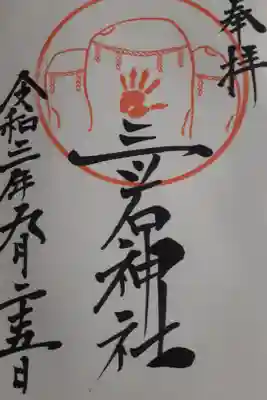 奉拝
三ツ石神社
令和二年九月二十五日